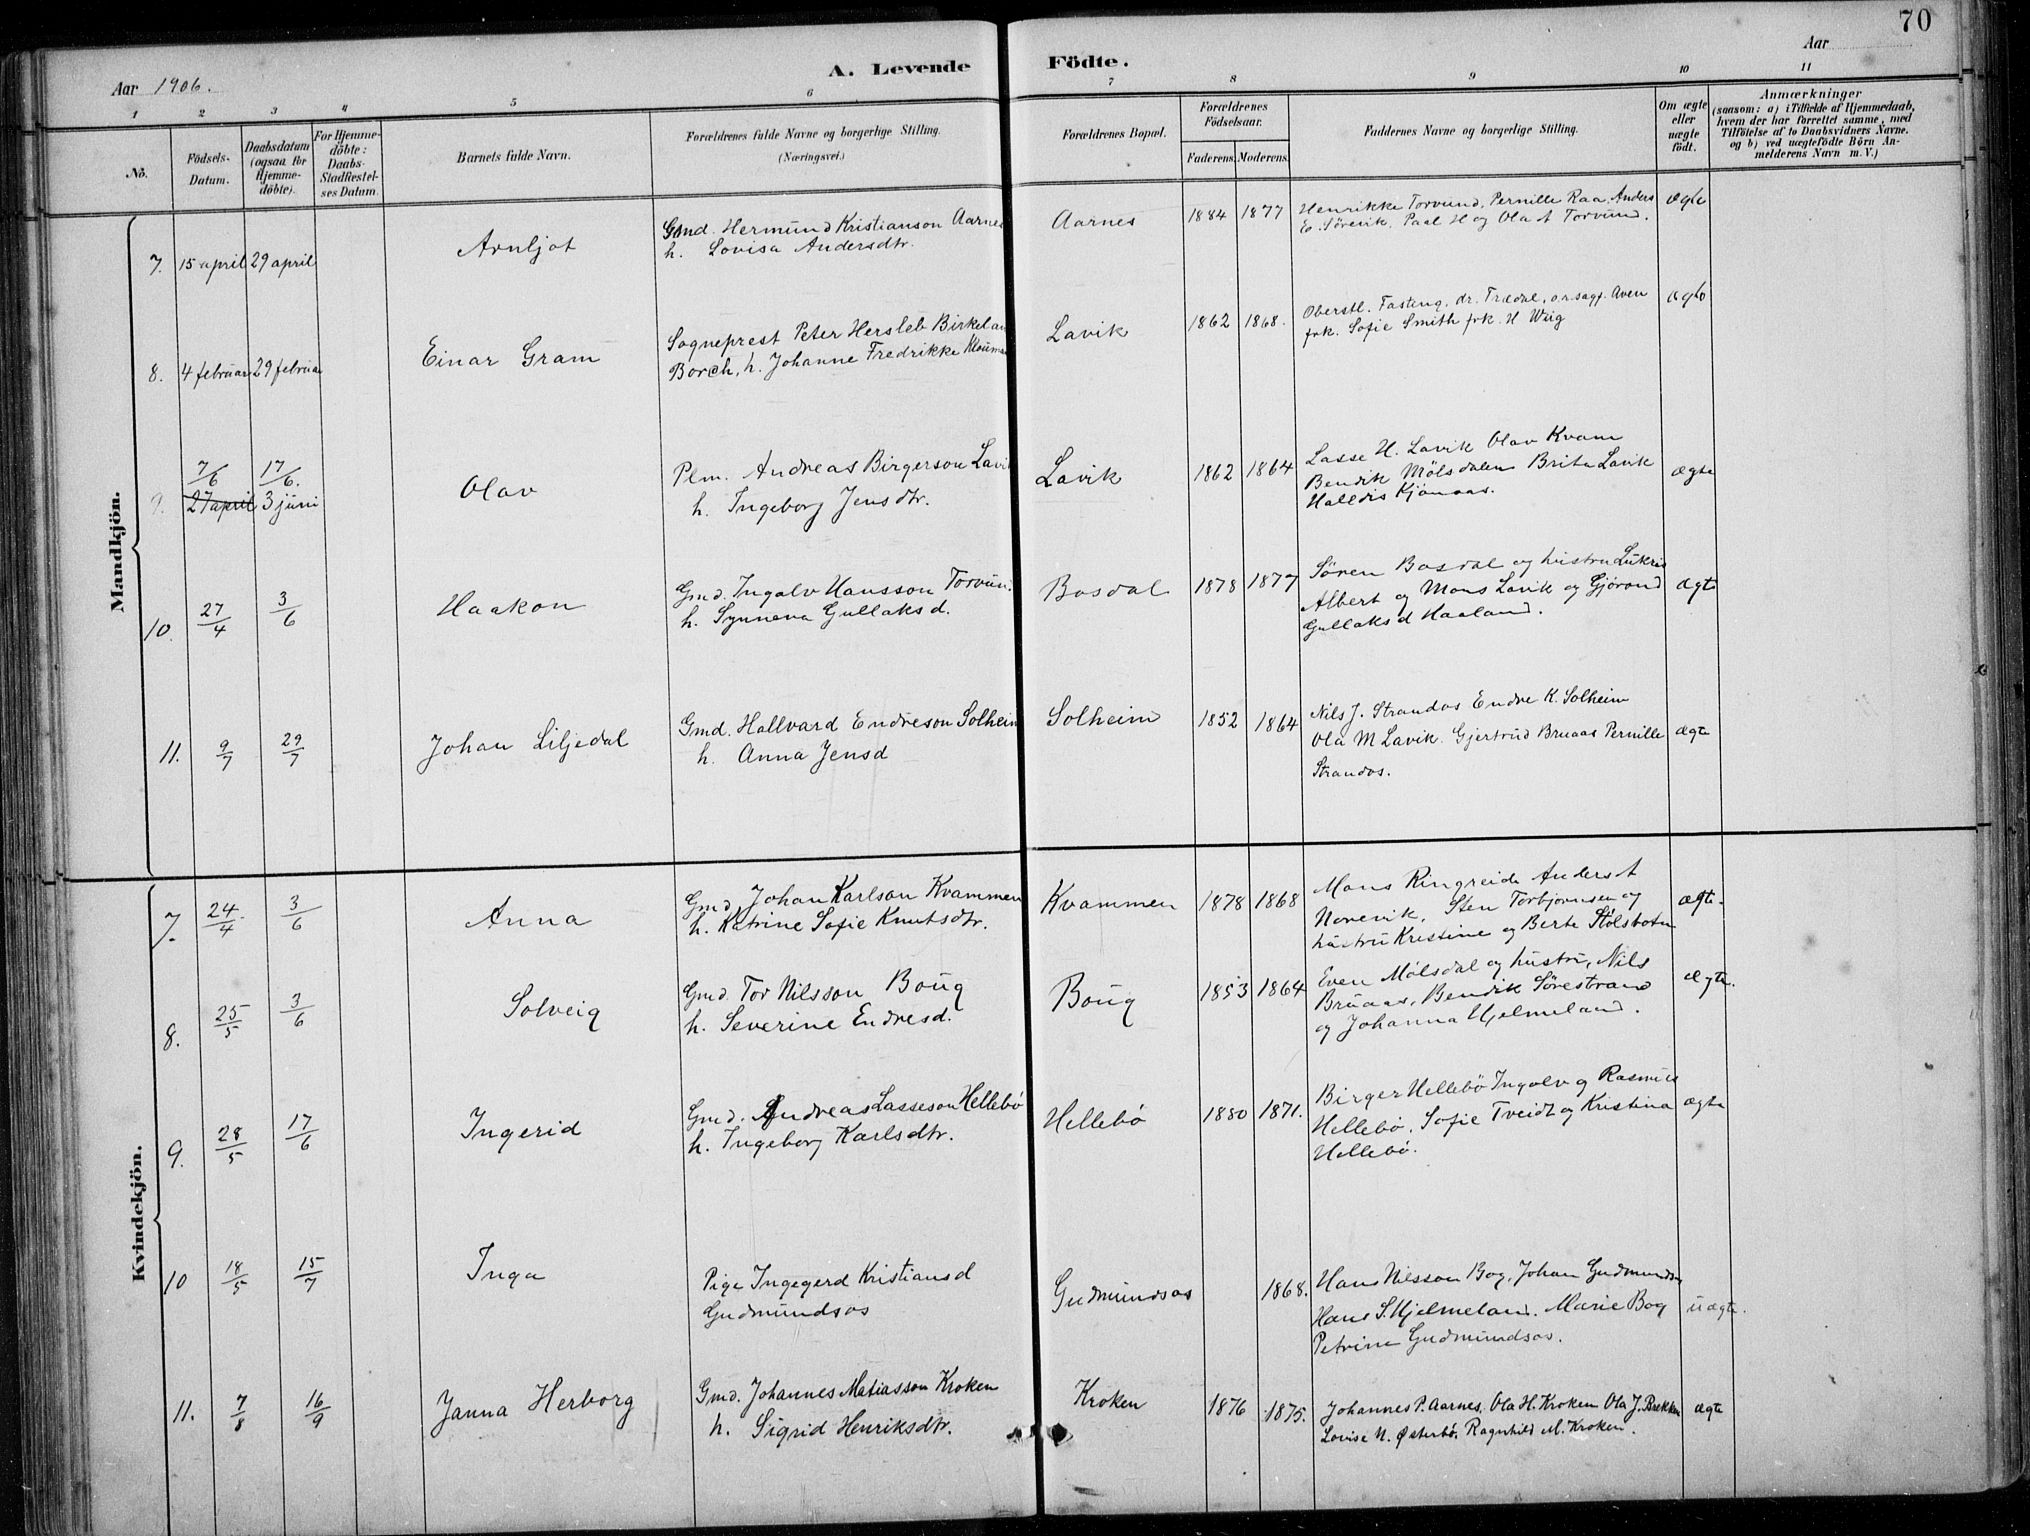 70
Aar 1906.
A. Levende Födte.
Aar
1 2 3 4 5 6 7 8 9 10 11
No.
Födsels-Datum.
Daabsdatum (ogsaa for Hjemme-döbte).
For Hjemme-döbte: Daabs-Stadfæstel-ses Datum.
Barnets fulde Navn.
Forældrenes fulde Navne og borgerlige Stilling.
(Næringsvei.)
Forældrenes Bopæl.
Forældrenes Födselsaar.
Faderens. Moderens.
Faddernes Navne og borgerlige Stilling.
Om ægte eller uægte födt.
Anmærkninger
(saasom: a) i Tilfælde af Hjemmedaab,
hvem der har forrettet samme, med
Tilföielse af to Daabsvidners Navne.
og b) ved uægtefödte Börn An-
melderens Navn m. V.)
Mandkjön.
7. 15 april 29 april Arnljot
Gmd. Hermund Kristianson Aarnes
h. Lovisa Andersdtr.
Aarnes 1884 1877
Henrikke Torvund, Pernille Raa, Anders
E. Sörevik, Paal H og Ola A Torvund.
ægte
8. 4 februar 29 februar Einar Gram
Sogneprest Peter Hersleb
Borch, h. Johanne Fredrikke
Lavik 1862 1868.
Oberstl. Fasting, dr. Trædal, o.r.sagf. Aven
frk. Sofie Smith frk. H Wiig
ægte
9. 7/6 17/6.
27 april 3 juni
Olav
Plm. Andreas Birgerson Lavik
h. Ingeborg Jensdtr.
Lavik 1862 1864
Lasse H. Lavik Olav Kvam
Bendik Mölsdalen Brita Lavik
Halldis Kjönaas.
ægte
10. 27/4 3/6 Haakon
Gmd. Ingolv Hansson
h. Synneva Gullaksd.
Bosdal 1878 1877
Sören Bosdal og hustru
Albert og Mons Lavik og Gjörond
Gullaksd Haaland.
ægte
11. 9/7 29/7 Johan Liljedal
Gmd. Hallvard Endreson Solheim
h. Anna Jensd
Solheim 1852 1864
Nils J. Strandos Endre K. Solheim
Ola M Lavik. Gjertrud Bruaas Pernille
Strandos.
ægte
Kvindekjön.
7. 24/4. 3/6 Anna
Gmd. Johan Karlson Kvammen
h. Katrine Sofie Knutsdtr.
Kvammen 1878 1868
Mons Ringreide Anders A
Norevik, Sten Torbjørnsen og
hustru Kristine og Berte Stölsbotn
ægte.
8. 25/5 3/6 Solveig
Gmd. Tor Nilsson Böug
h. Severine Endresd.
Böug 1853 1864
Even Mölsdal og hustru, Nils
Bruaas, Bendik Sörestrand
og Johanna Hjelmeland.
ægte.
9. 28/5 17/6 Ingerid
Gmd. Andreas Lasseson Hellebö
h. Ingeborg Karlsdtr.
Hellebö 1880 1871.
Birger Hellebö Ingolv og Rasmus
Hellebö, Sofie Tveidt og Kristina
Hellebö.
ægte
10 18/5 15/7 Inga
Pige Ingegerd Kristiansd
Gudmundsos
Gudmundsos 1868.
Hans Nilsson Bog, Johan Gudmundsos
Hans S. Hjelmeland. Marie Bog
Petrine Gudmundsos.
uægte.
11. 7/8 16/9 Janna Herborg
Gmd. Johannes Matiasson Kroken
h. Sigrid Henriksdtr.
Kroken 1876 1875.
Johannes P. Aarnes, Ola H. Kroken Ola J. Brekken
Lovise N. Østerbö, Ragnhild M. Kroken.
ægte